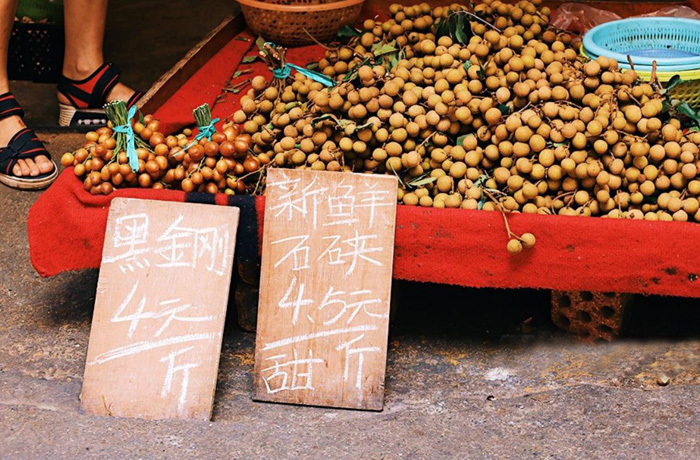 黑金刚
4元
斤
新鲜
石硖
4.5元
甜 斤